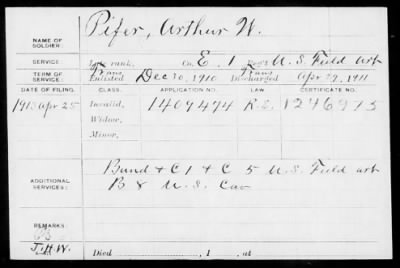 NAME OF SOLDIER: Pifer, Arthur W.
SERVICE: Late rank, Co. E. 1 Reg't U.S. Field art
TERM OF SERVICE: Trans Enlisted Dec 20, 1910 Trans Discharged Apr 29, 1911
DATE OF FILING. CLASS. APPLICATION NO. LAW. CERTIFICATE NO.
1913 apr 25 Invalid, 1409494 1246975
Widow,
Minor,
ADDITIONAL SERVICES: Band + C 1 + C 5 U.S. Field art
B 8 U.S. Cav
REMARKS:
J.H.W.
Died , 1 , at